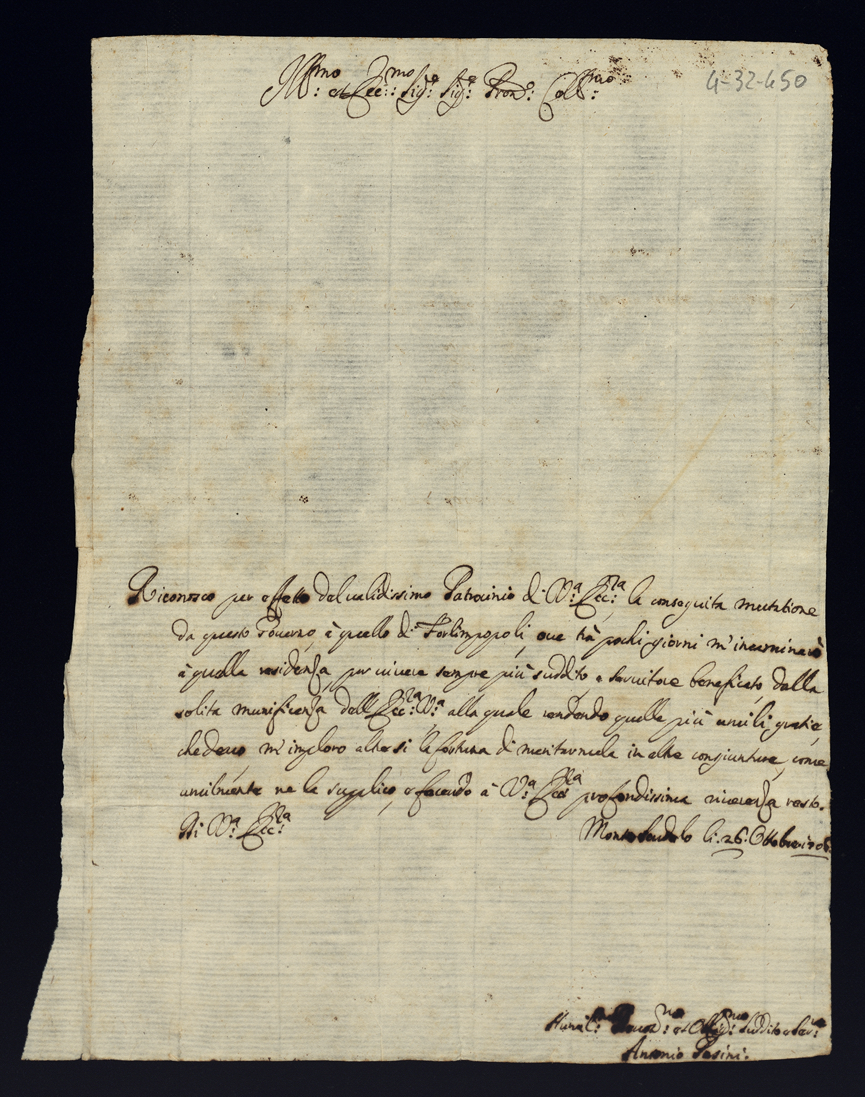 Ill:mo et Ecc:mo Sig:re Sig:re Pron: Coll:mo
4-32-450
Riconosco per effetto del ualidissimo Patrocinio di V:a Ecc:za la conseguita mutatione
da questo Gouerno, à quello di Forlimpopoli, oue trà pochi giorni m'incaminerò
à quella residenza per uiuere sempre più suddito e seruitore beneficato dalla
solita munificenza dell'Ecc:za V:a alla quale rendendo quelle più umili gratie,
che deuo, m'imploro altresi la fortuna di meritarmela in altre congiunture, come
umilmente ne la supplico, e facendo à V:a Ecc:za profondissima riuerenza resto.
Di V:a Ecc:za
Monte Scudolo li: 26: Ottobre
Humil:mo et Oblig:mo Suddito e Ser:re
Antonio Pasini.